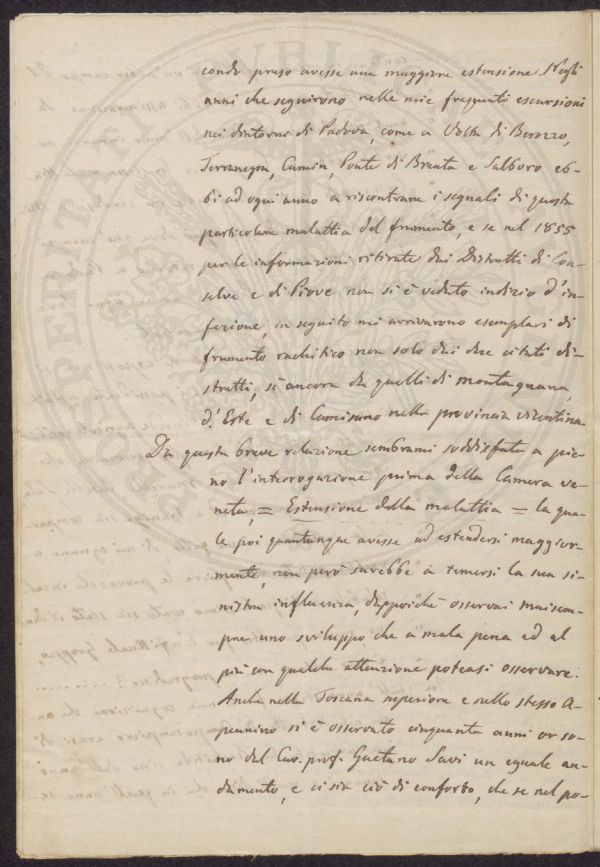 condo preso avesse una maggiore estensione. Negli
anni che seguirono nelle mie frequenti escursioni
nei dintorni di Padova, come a Volta di Berozzo,
Terranegra, Camin, Ponte di Brenta e Salboro eb-
bi ad ogni anno a riscontrare i segnali di questa
particolare malattia del frumento, e se nel 1855
per le informazioni ritirate dai Distretti di Con-
selve e di Piove non si è veduto indizio d'in-
fezione, in seguito mi arrivarono esemplari di
frumento rachitico non solo dai due citati di-
stretti, sì ancora da quelli di Montagnana,
d'Este e di Camisano nella provincia vicentina.
Da questa breve relazione sembrami soddisfatta a pie-
no l'interrogazione prima della Camera ve-
neta, = Estensione della malattia = la qua-
le poi quantunque avesse ad estendersi maggior-
mente, non però sarebbe a temersi la sua si-
nistra influenza, dappoichè osservai maisem-
pre uno sviluppo che a mala pena ed al
più con qualche attenzione poteasi osservare.
Anche nella Toscana superiore e nello stesso A-
pennino si è osservato cinquanta anni or so-
no dal Cav. prof. Gaetano Savi un eguale an-
damento, e ci sia ciò di conforto, che se nel po-